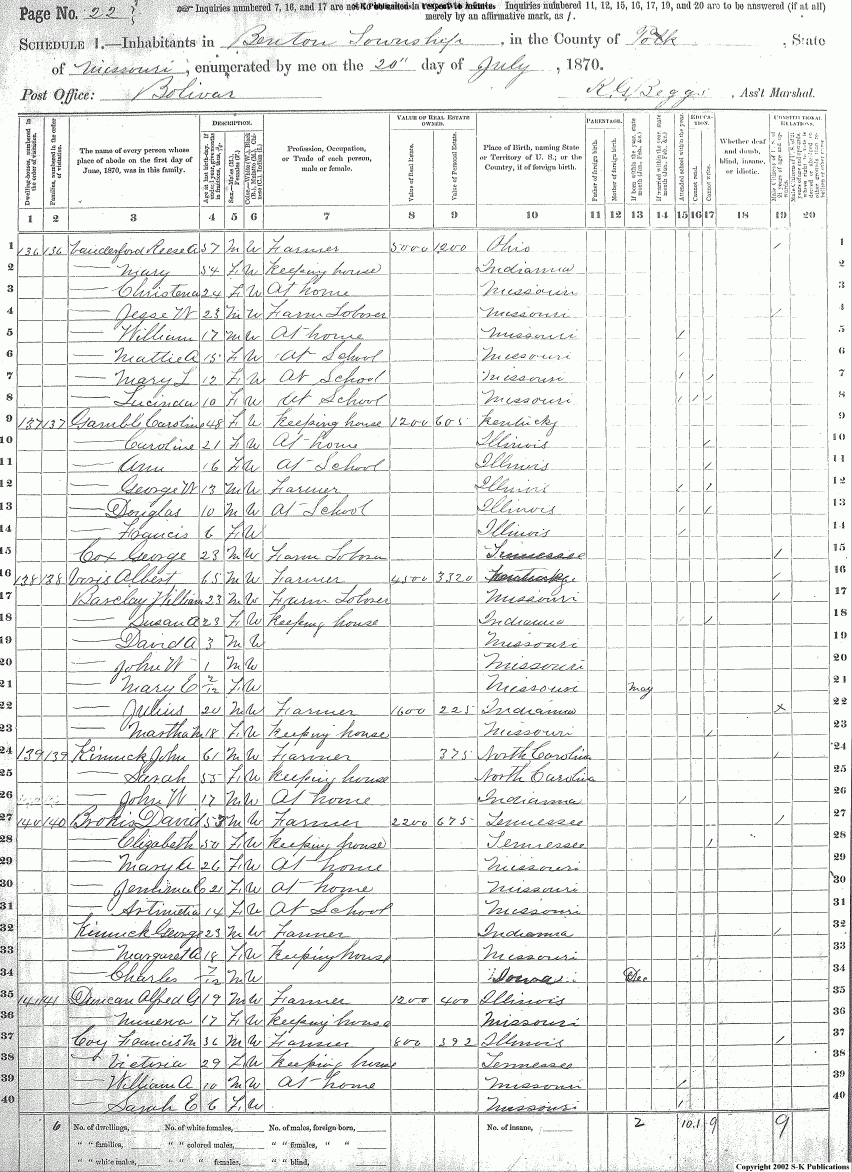 Page No. 22
Inquiries numbered 7, 16, and 17 are not Inquiries numbered 11, 12, 15, 16, 17, 19, and 20 are to be answered (if at all)
merely by an affirmative mark, as /.
SCHEDULE 1.—Inhabitants in Benton Township, in the County of Polk, State
of Missouri, enumerated by me on the 20" day of July, 1870.
Post Office: Bolivar R. G. Beggs, Ass't Marshal.
Dwelling-houses, numbered in the order of visitation.
Families, numbered in the order of visitation.
The name of every person whose place of abode on the first day of June, 1870, was in this family.
DESCRIPTION.
Profession, Occupation, or Trade of each person, male or female.
VALUE OF REAL ESTATE OWNED.
Value of Real Estate.
Value of Personal Estate.
Place of Birth, naming State or Territory of U. S.; or the Country, if of foreign birth.
PARENTAGE.
Father of foreign birth.
Mother of foreign birth.
EDUCATION.
Attended school within the year.
Cannot read.
Cannot write.
Whether deaf and dumb, blind, insane, or idiotic.
CONSTITUTIONAL RELATIONS.
1 2 3 4 5 6 7 8 9 10 11 12 13 14 15 16 17 18 19 20
1 136 136 Vanderford Reese A 57 M W Farmer 5000 1200 Ohio / 1
2 — Mary 54 F W Keeping house Indianna 2
3 — Christena 24 F W At home Missouri 3
4 — Jesse W 23 M W Farm Loborer Missouri / 4
5 — William 17 M W At home Missouri / 5
6 — Mattie A 15 F W At School Missouri / 6
7 — Mary L 12 F W At School Missouri / / 7
8 — Lucinda 10 F W At School Missouri / / / 8
9 137 137 Gamble Caroline 48 F W Keeping house 1200 605 Kentucky 9
10 — Caroline 21 F W At home Illinois / 10
11 — Ann 16 F W At School Illinois / 11
12 — George W 13 M W Farmer Illinois / / 12
13 — Douglas 10 M W At School Illinois / / 13
14 — Francis 6 F W Illinois / 14
15 Cox George 23 M W Farm Loborer Tennessee / 15
16 138 138 Albert 65 M W Farmer 4500 3320 Kentucky / 16
17 Barclay William 23 M W Farm Loborer Missouri / 17
18 — Susan A 23 F W Keeping house Indianna / 18
19 — David A 3 M W Missouri 19
20 — John W 1 M W Missouri 20
21 — Mary E 2/12 F W Missouri May 21
22 — Julius 20 M W Farmer 1600 225 Indianna x 22
23 — Martha M 18 F W Keeping house Missouri / 23
24 139 139 Kinnick John 61 M W Farmer 375 North Carolina / 24
25 — Sarah 55 F W Keeping house North Carolina 25
26 — John W 17 M W At home Indianna / 26
27 140 140 David 53 M W Farmer 2200 675 Tennessee / 27
28 — Elizabeth 50 F W Keeping house Tennessee / 28
29 — Mary A 26 F W At home Missouri 29
30 — Jemima C 21 F W At home Missouri 30
31 — Artimetia 14 F W At School Missouri 31
32 Kinnick George 23 M W Farmer Indianna / 32
33 — Margaret A 18 F W Keeping house Missouri 33
34 — Charles 7/12 M W Iowa Dec 34
35 141 141 Duncan Alfred G 19 M W Farmer 1200 400 Illinois 35
36 — Minerva 17 F W Keeping house Missouri 36
37 Coy Francis M 36 M W Farmer 800 392 Illinois / 37
38 — Victoria 29 F W Keeping house Tennessee 38
39 — William A 10 M W At home Missouri / 39
40 — Sarah E 6 F W Missouri / 40
6 No. of dwellings, No. of white females, No. of males, foreign born, No. of insane, 2 10 1 9 9
" " families, " " colored males, " " females, " "
" " white males, " " females, " " blind,
Copyright 2002 S-K Publications